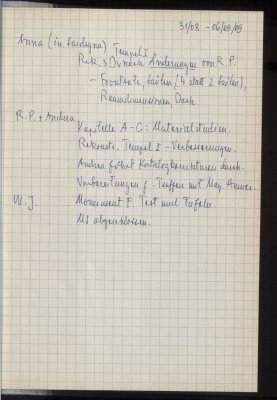 31/08 – 06/09/09
Anna (in Sardegna) Tempel I,
Rek. 3D nach Änderungen von R.P.
– Fronthöhe, Säulen (4 statt 2 Säulen),
Raumdimensionen, Dach
R.P. + Andrea
Kapitelle A–G: Materialstudien.
Rekonstr. Tempel I – Verbesserungen.
Andrea führt Katalogkorrekturen durch.
Vorbereitungen f. Treffen mit Mag.
W.J. Monument F Text und Tafeln.
MS abgeschlossen.